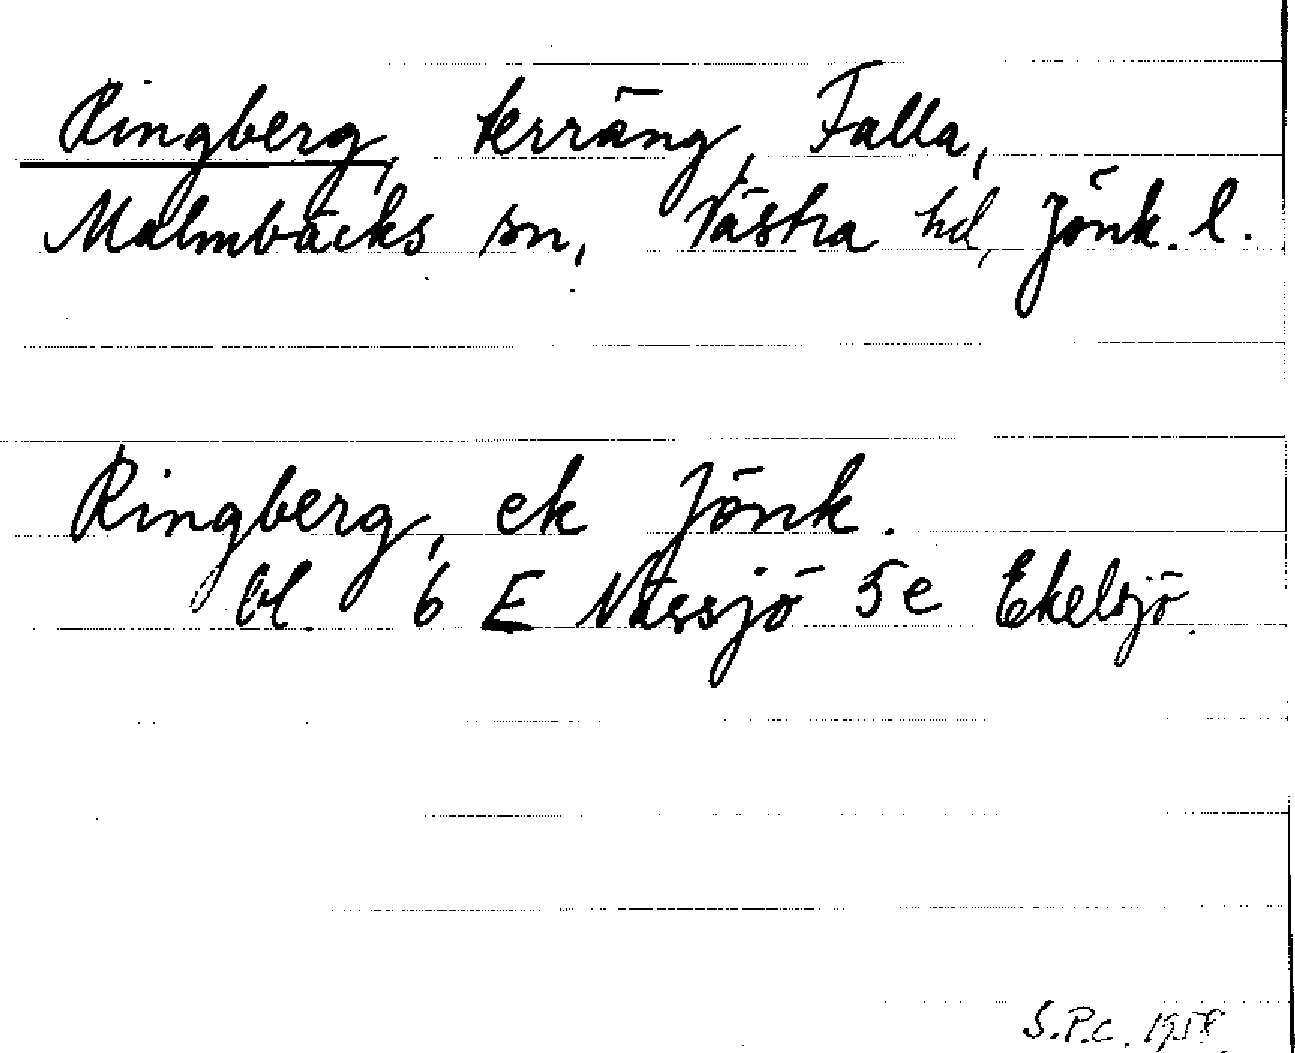 Ringberg, terräng, Falla,
Malmbäcks sn, Västra hd, Jönk. l.
Ringberg, ek Jönk.
bl. 6 E Nässjö 5e Ekelsjö.
S.P.C. 1958.